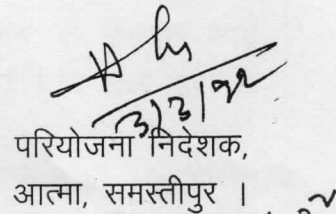 3/3/22
परियोजना निदेशक,
आत्मा, समस्तीपुर ।